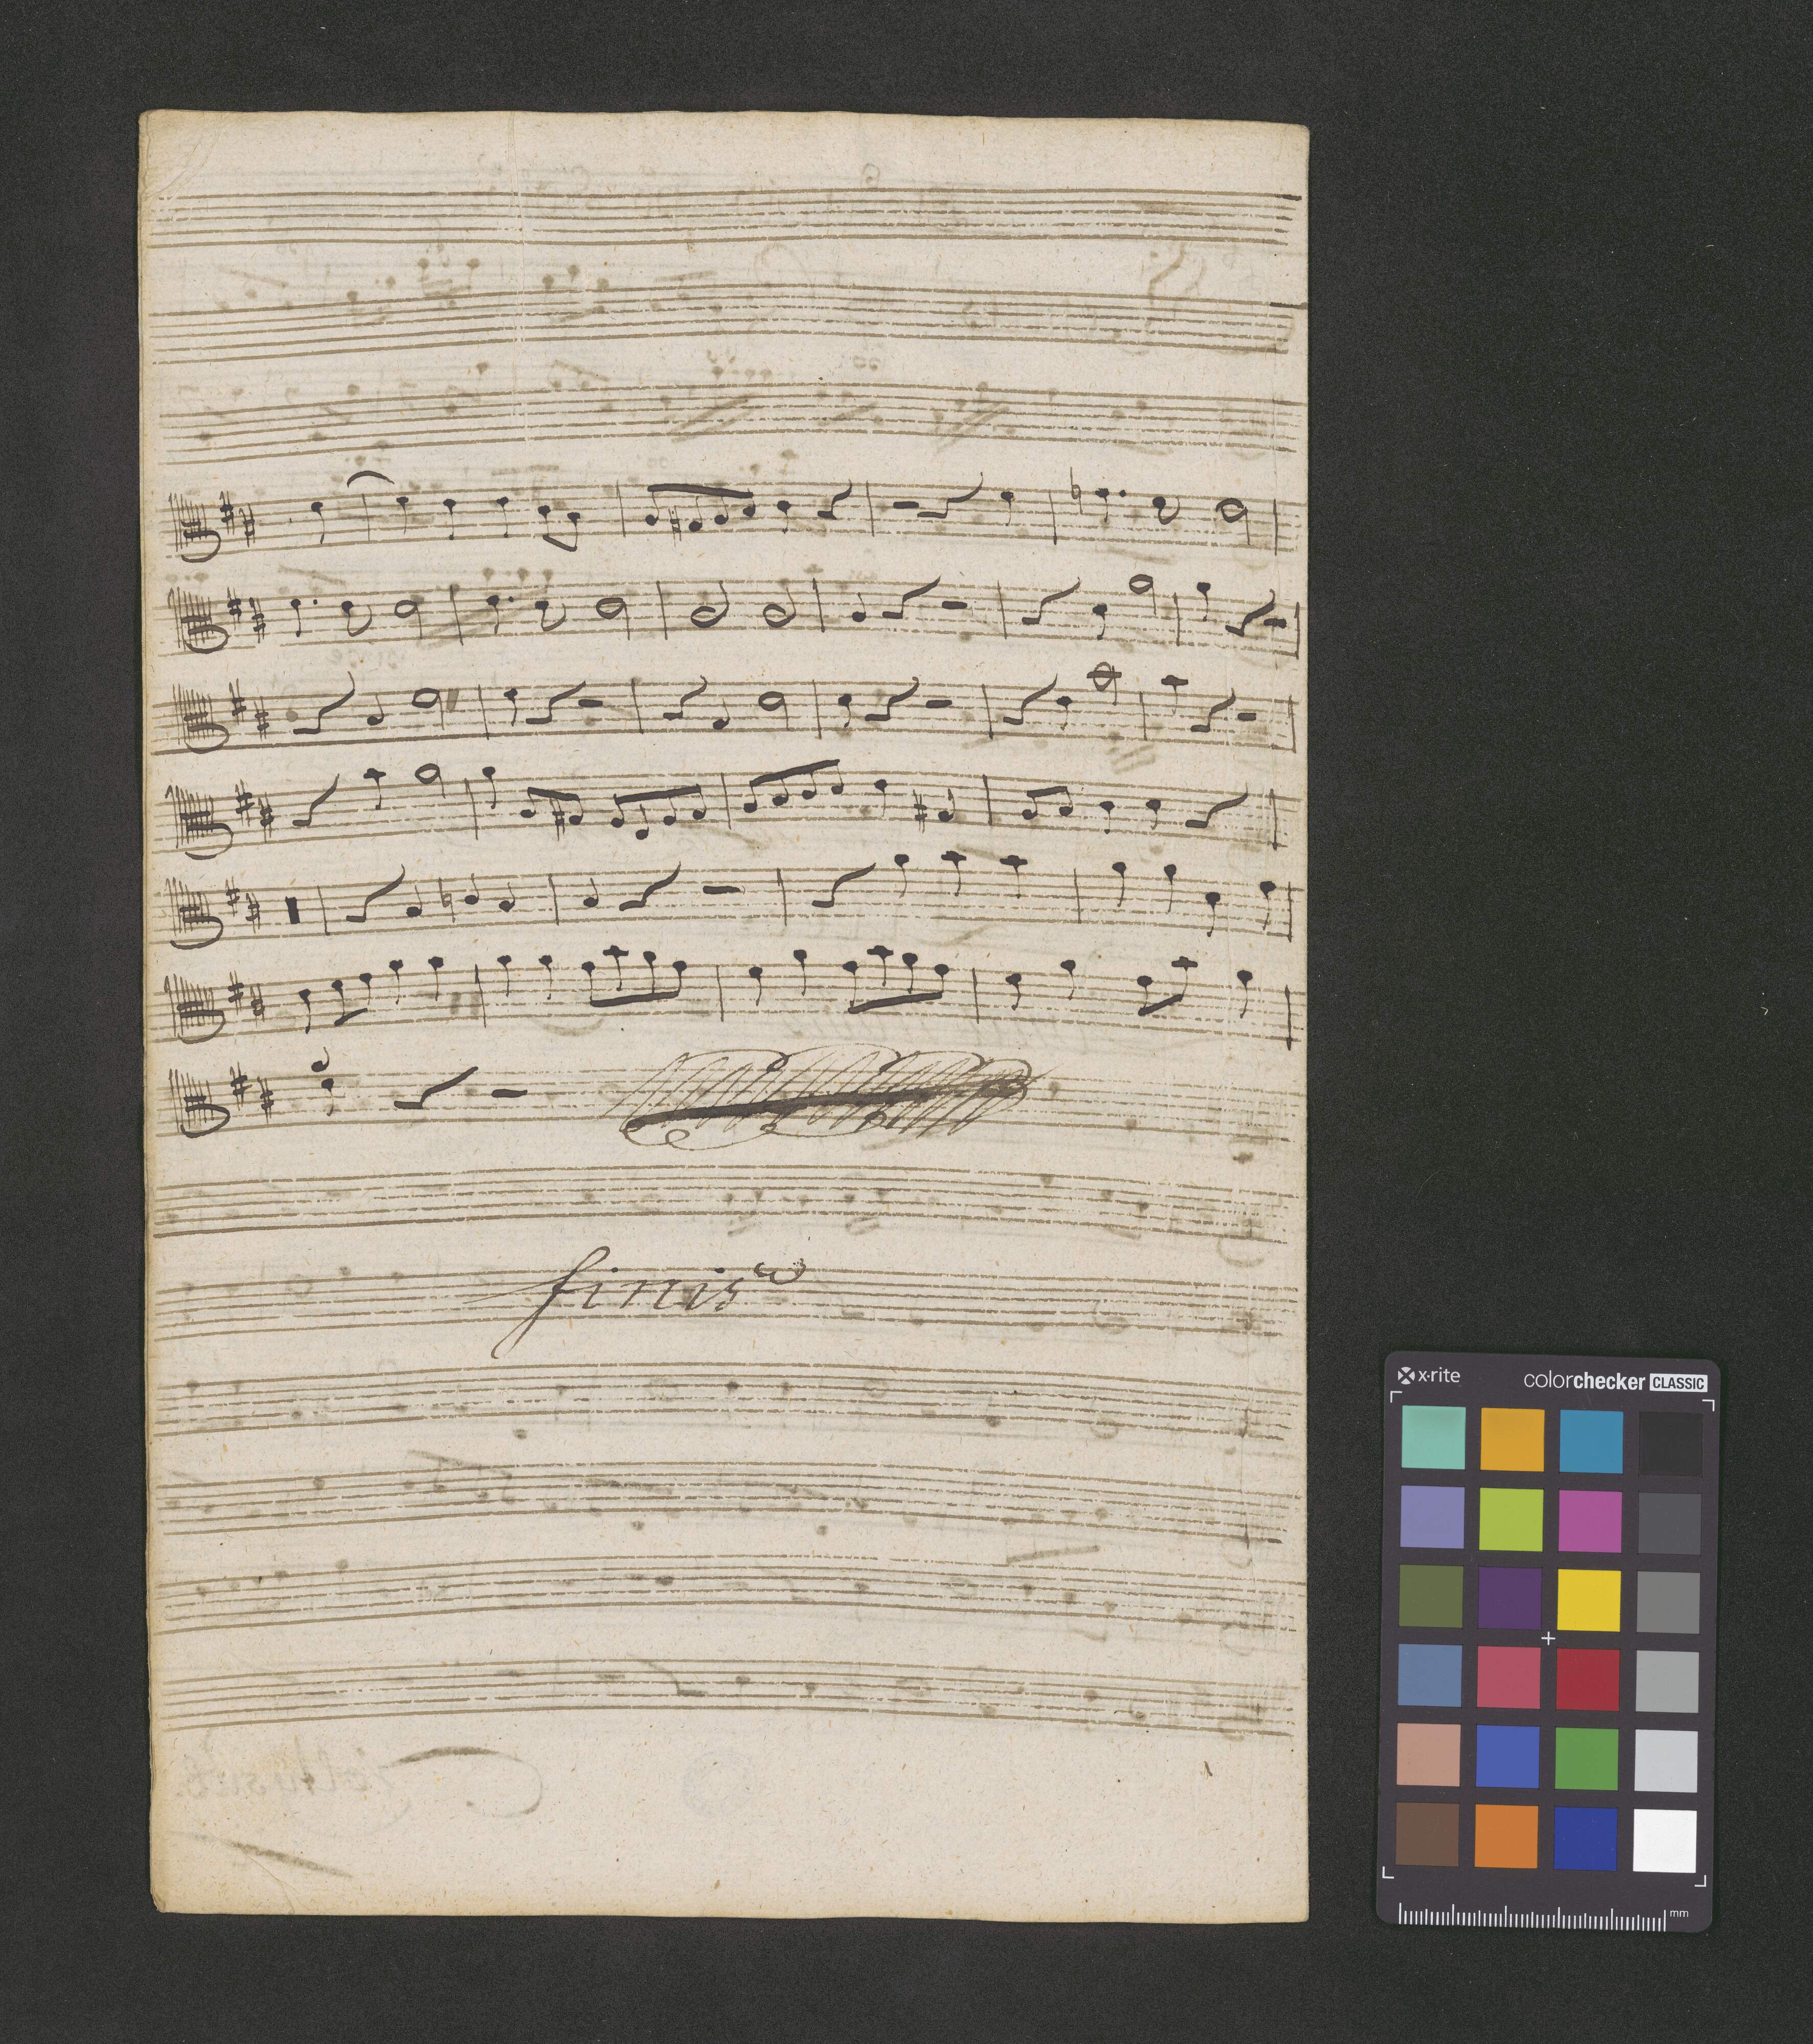 finis
x-rite
colorchecker CLASSIC
mm